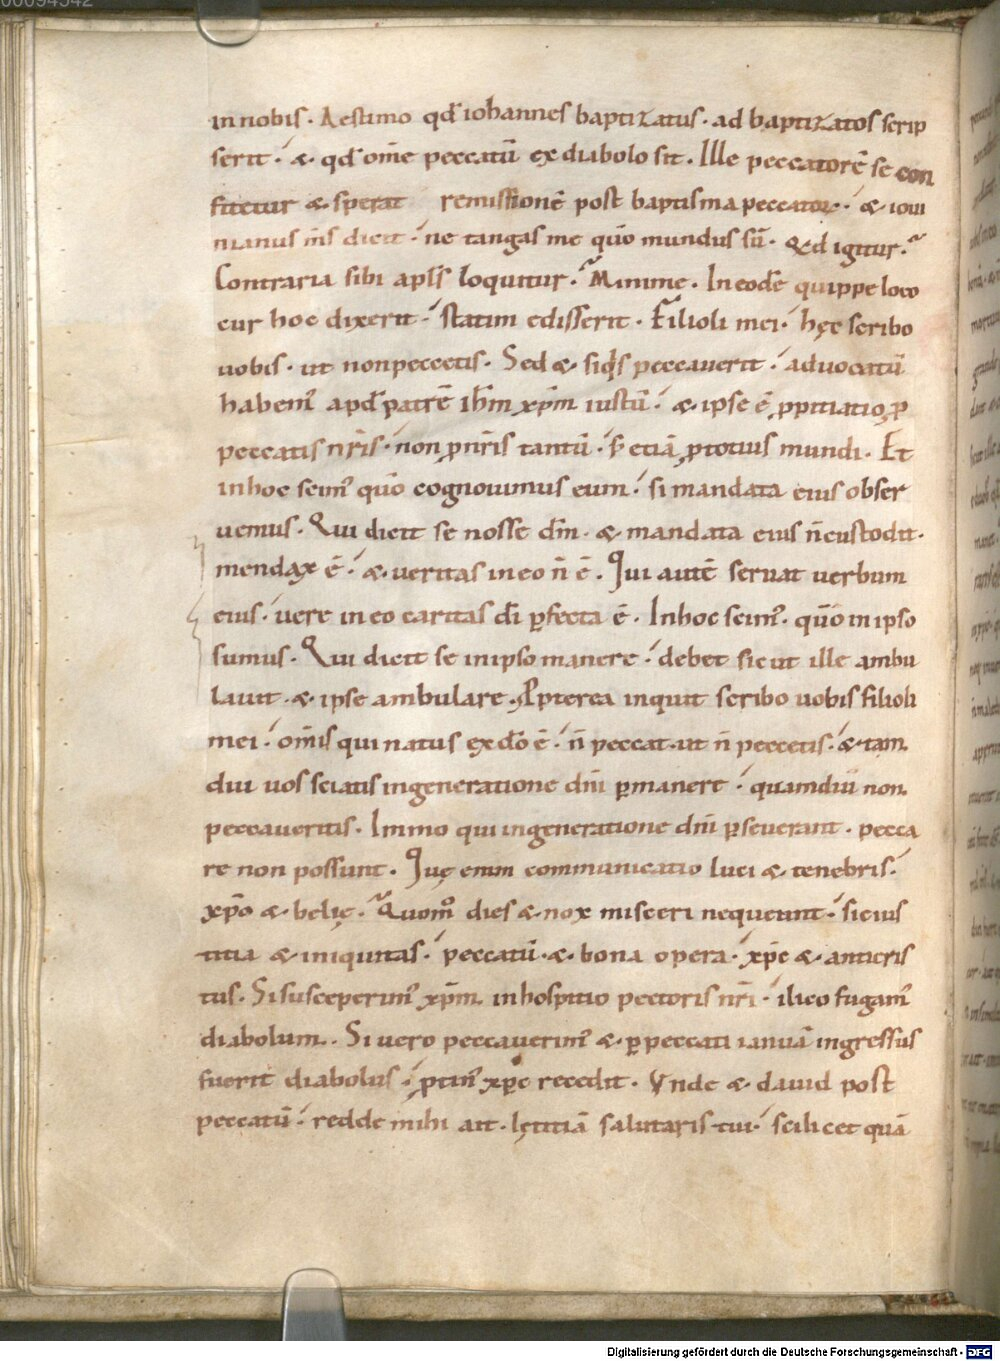 00094542
in nobis. Aestimo qđ iohannes baptizatus. ad baptizatos scrip
serit. & qđ om̄e peccatū ex diabolo sit. Ille peccatorē se con
fitetur & sperat remissionē post baptisma peccator. & ioui
nianus m̄s dicit. ne tangas me qūo mundus sū. Qđ igitur.
Contraria sibi apl̄s loquitur. Minime. In eodē quippe loco
cur hoc dixerit. statim edisserit. Filioli mei. hęc scribo
uobis. ut non peccetis. Sed & siq̄s peccauerit. aduocatū
habem' apđ patrē ihm̄ xp̄m iustū. & ipse ē ꝓpitiatio ꝓ
peccatis nr̄is. non ꝓ nr̄is tantū. s; etiā ꝓ totius mundi. Et
in hoc scim' qūo cognouimus eum. si mandata eius obser
uemus. Qui dicit se nosse dm̄. & mandata eius n̄ custodit.
mendax ē. & ueritas in eo n̄ ē. Qui autē seruat uerbum
eius. uere in eo caritas dī ꝑfecta ē. In hoc scim'. qūo in ipso
sumus. Qui dicit se in ipso manere. debet sicut ille ambu
lauit. & ipse ambulare. Ꝓpterea inquit scribo uobis filioli
mei. om̄is qui natus ex dō ē. n̄ peccat. ut n̄ peccetis. & tam
diu uos sciatis in generatione dn̄i ꝑmanere. quamdiu non
peccaueritis. Immo qui in generatione dn̄i ꝑseuerant. pecca
re non possunt. Quę enim communicatio luci & tenebris.
xp̄o & belię. Quom̄o dies & nox misceri nequeunt. sic ius
titia & iniquitas. peccatū & bona opera. xp̄c & anticris
tus. Si susceperim' xp̄m in hospitio pectoris nr̄i. ilico fugam'
diabolum. Si uero peccauerim' & ꝑ peccati ianuā ingressus
fuerit diabolus. ꝓtin' xp̄c recedit. Vnde & dauid post
peccatū. redde mihi ait. lętitiā salutaris tui. scilicet quā
Digitalisierung gefördert durch die Deutsche Forschungsgemeinschaft - DFG